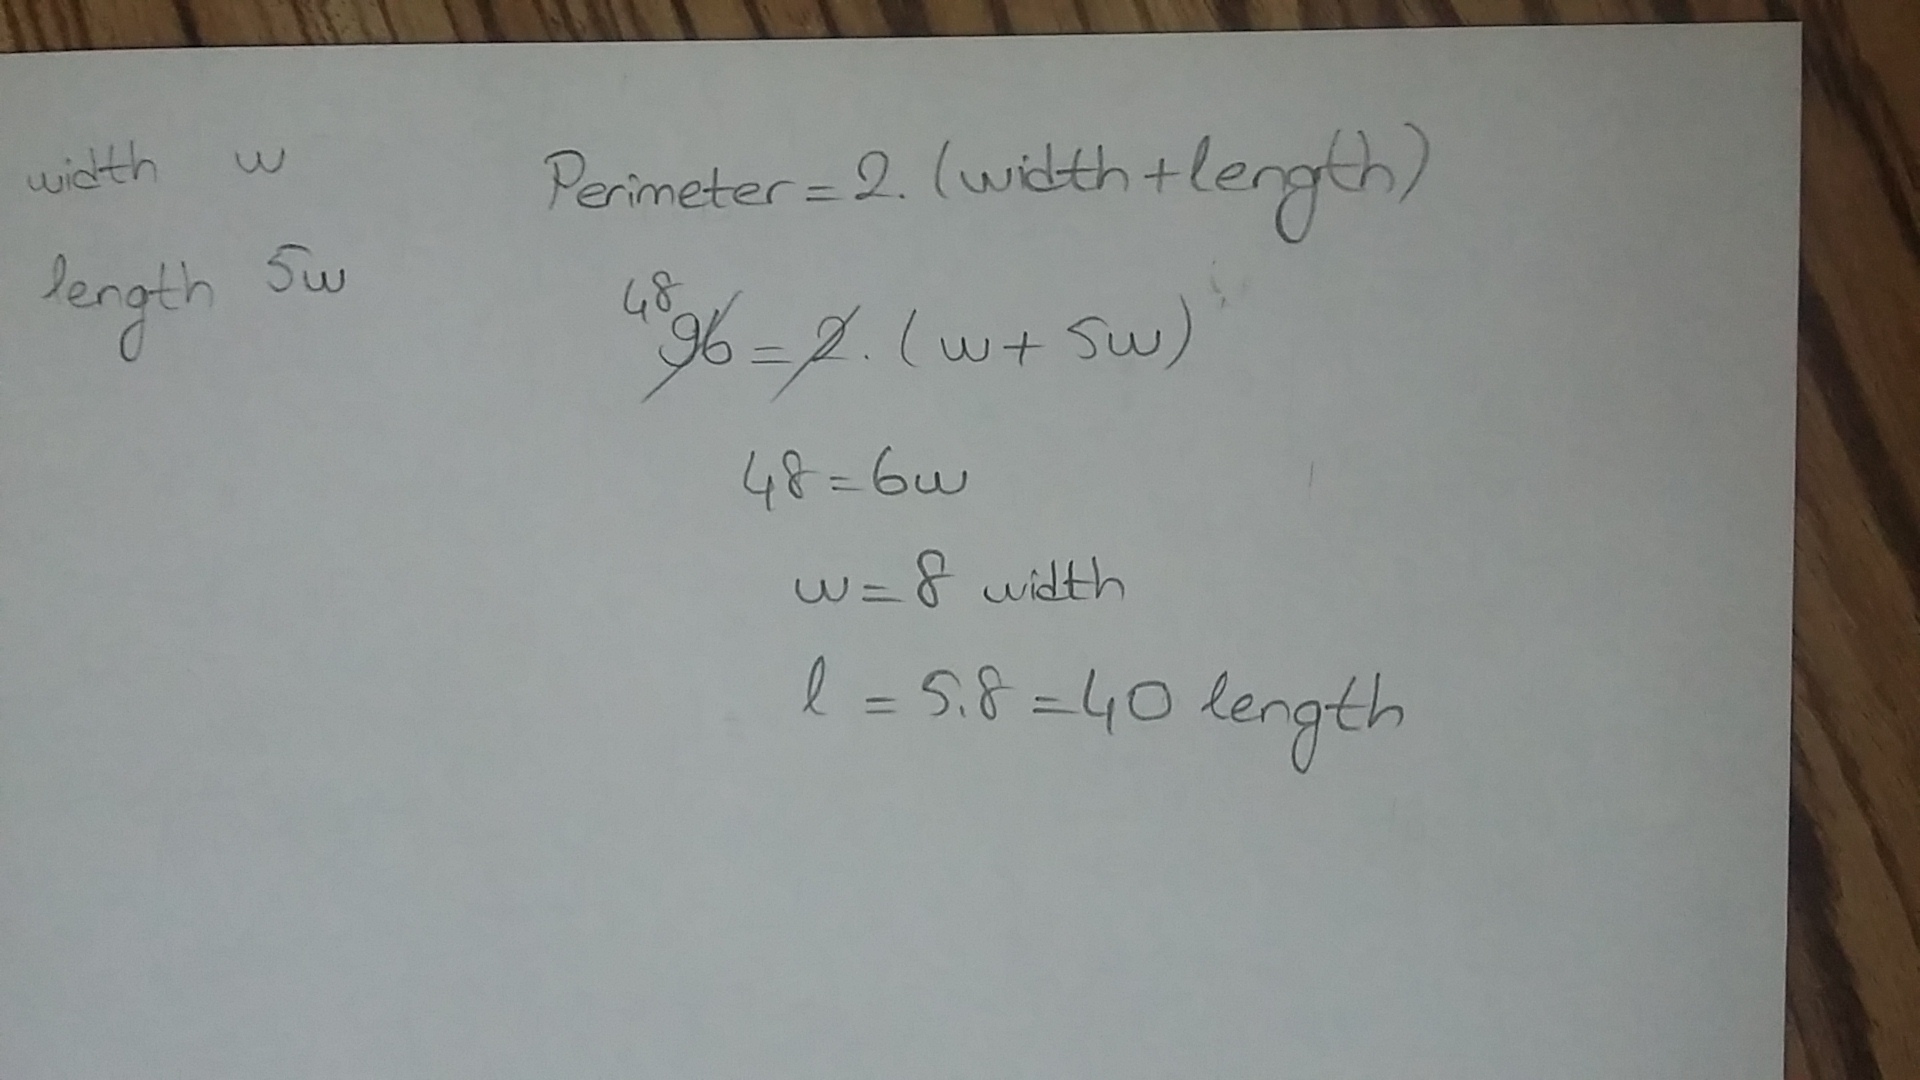 width w
length 5w
Perimeter = 2. (width + length)
48
96 = 2. (w + 5w)
48 = 6w
w = 8 width
l = 5.8 = 40 length